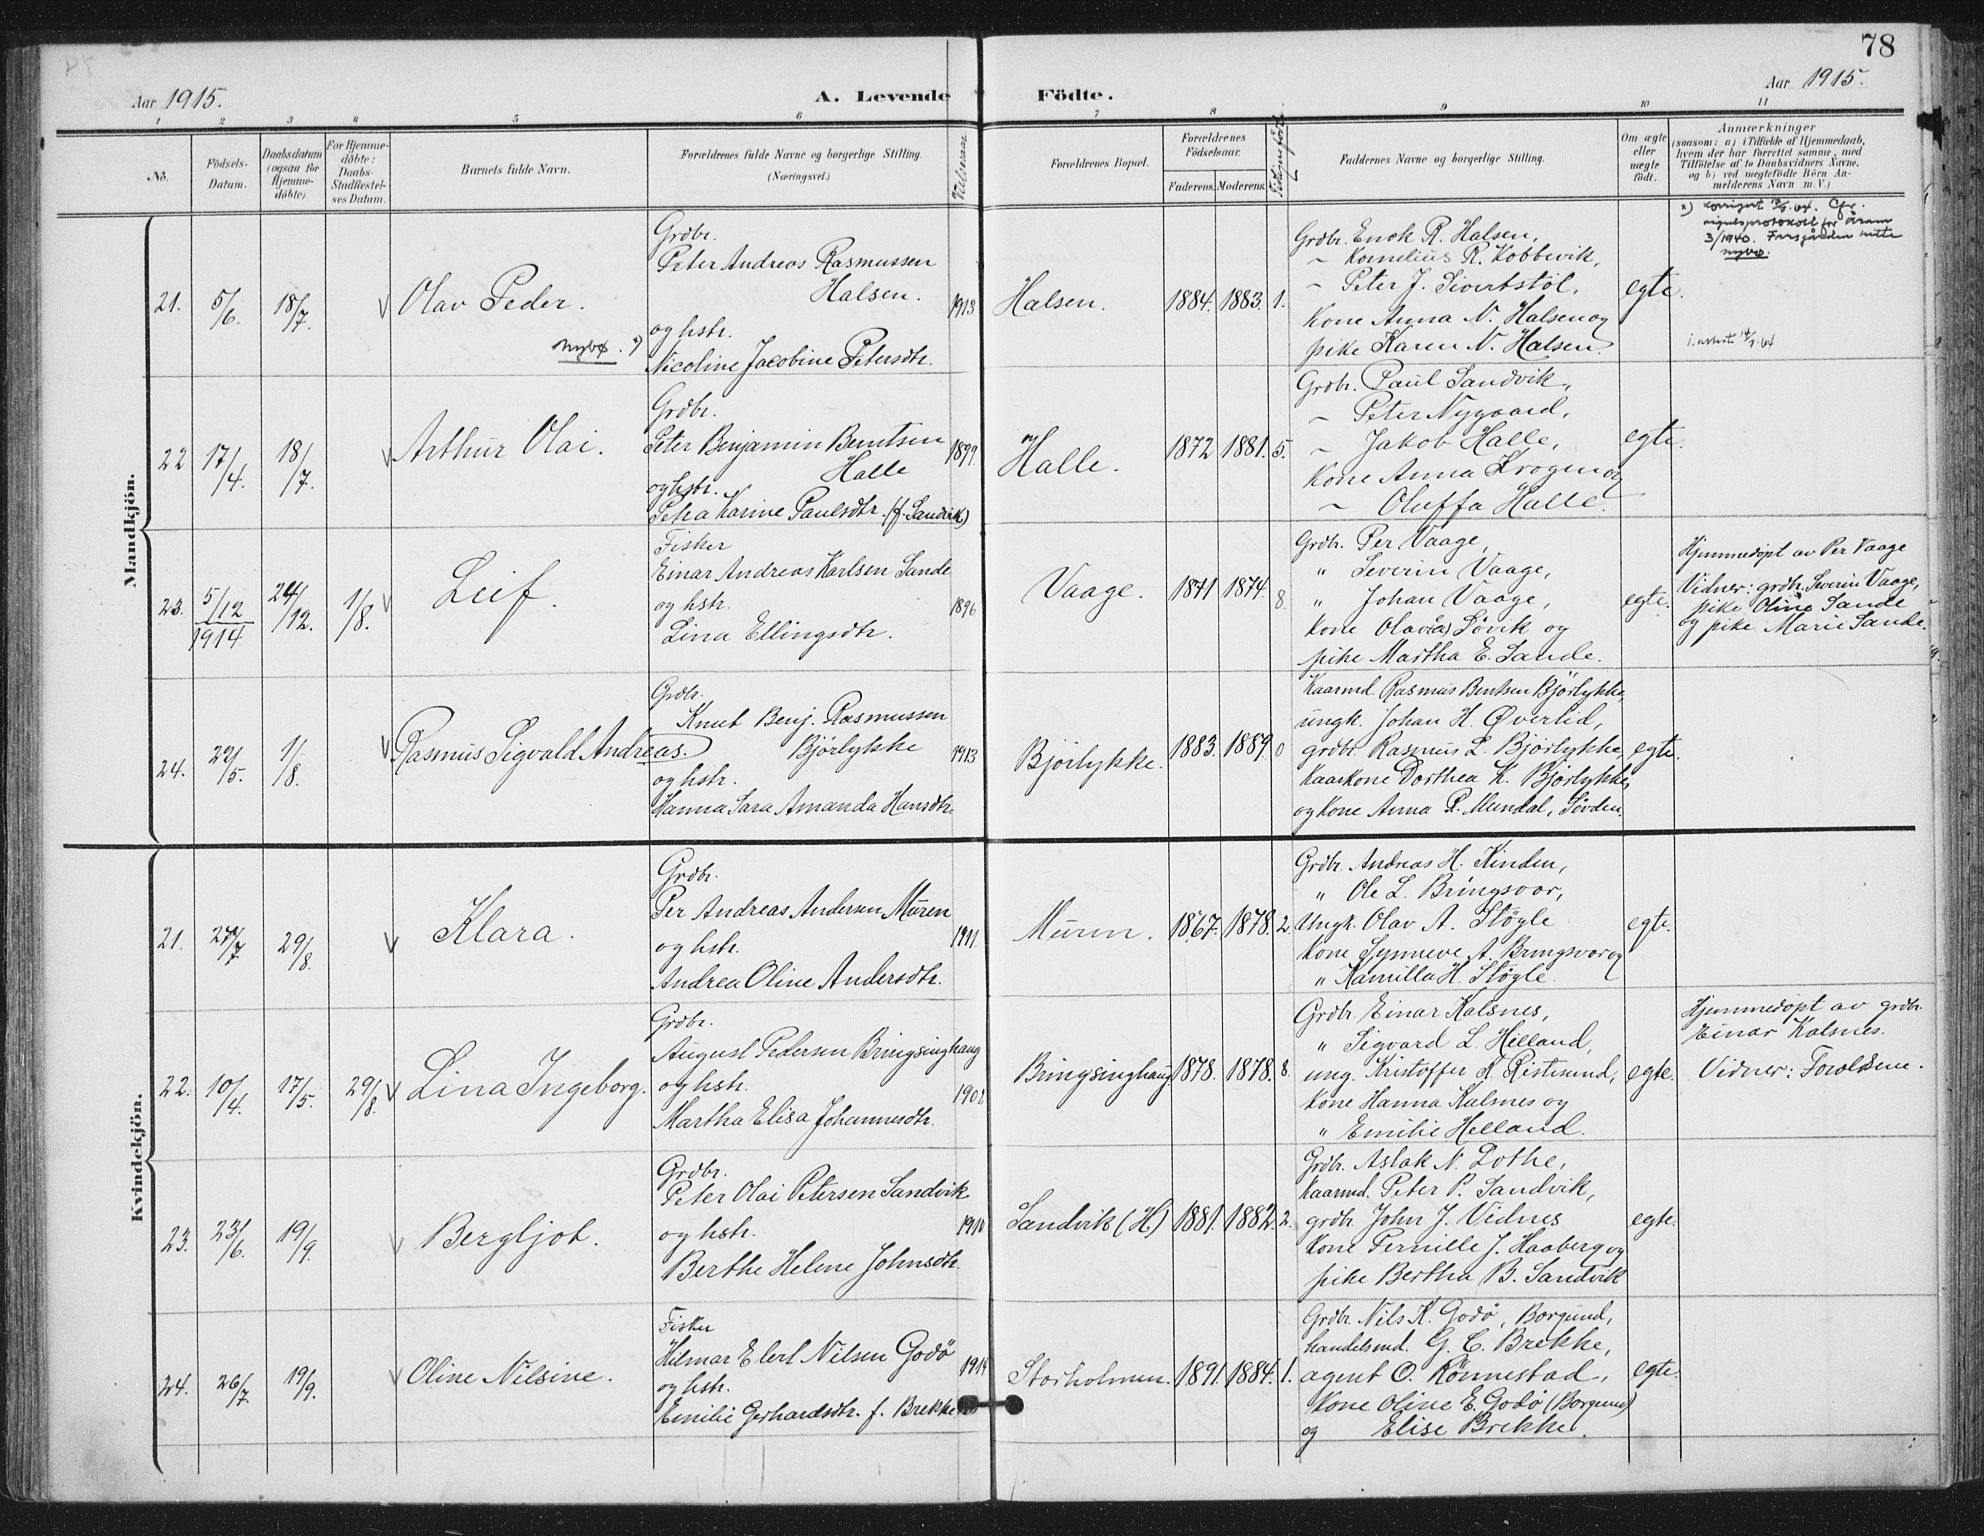 78
Aar 1915.
A. Levende Födte.
Aar 1915.
1 2 3 4 5 6 7 8 9 10 11
No.
Födsels-Datum.
Daabsdatum (ogsaa for Hjemme-döbte).
For Hjemme-döbte: Daabs-Stadfæstel-ses Datum.
Barnets fulde Navn.
Forældrenes fulde Navne og borgerlige Stilling.
(Næringsvei.)
Vielsesaar
Forældrenes Bopæl.
Forældrenes Födselsaar.
Faderens. Moderens.
Faddernes Navne og borgerlige Stilling.
Om ægte eller uægte födt.
Anmærkninger
(saasom: a) i Tilfælde af Hjemmedaab, hvem der har forrettet samme, med Tilföielse af to Daabsvidners Navne, og b) ved uægtefödte Börn An-melderens Navn m. V.)
Mandkjön.
21. 5/6. 18/7. Olav Peder.
Nybø. x)
Grdbr.
Peter Andreas Rasmussen
Halsen.
og hstr.
Nicoline Jacobine Petersdtr.
1913 Halsen. 1884. 1883. 1.
Grdbr. Enok R. Halsen,
~ Kornelius R. Kobbevik,
~ Peter J. Sivertstöl,
Kone Anna N. Halsen og
pike Karen N. Halsen.
egte.
x) Korrigert
3/1940.
Nybø.
22 17/4. 18/7. Arthur Olai.
Grdbr.
Peter Benjamin Berntsen
Halle
og hstr.
Petra Karine Paulsdtr. (f. Sandvik)
1899. Halle. 1872 1881. 5.
Grdbr. Paul Sandvik,
~ Peter Nygaard,
~ Jakob Halle,
Kone Anna Krogen og
~ Oluffa Halle.
egte.
23. 5/12 1914 24/12. 1/8. Leif.
Fisker
Einar Andreas Karlsen Sande
og hstr.
Lina Ellingsdtr.
1896 Vaage. 1871 1874. 8.
Grdbr. Per Vaage,
" Severin Vaage,
" Johan Vaage,
Kone Olava Lövik og
pike Martha E. Sande.
egte.
Hjemmedöpt av Per Vaage
Vidner: grdbr. Severin Vaage,
pike Oline Sande
og pike Marie Sande.
24. 29/5. 1/8. Rasmus Sigvald Andreas.
Grdbr.
Knut Benj. Rasmussen
Bjørlykke
og hstr.
Hanna Sara Amanda Hansdtr.
1913 Bjørlykke. 1883. 1889. 0
Kaarmd. Rasmus Bentsen Bjørlykke,
ungk. Johan H. Øverlid,
grdbr. Rasmus L. Bjørlykke,
Kaarkone Dorthea K. Bjørlykke,
og Kone Anna R. Mundal, Søvden.
egte.
Kvindekjön.
21. 27/7 29/8. Klara.
Grdbr.
Per Andreas Andersen Muren
og hstr.
Andrea Oline Andersdtr.
1911. Muren. 1867. 1878. 2.
Grdbr. Andreas H. Kinden,
" Ole L. Bringsvor,
Ungk. Olav A. Støyle
Kone Synneve A. Bringsvor og
" Kamilla H. Støyle.
egte.
22. 10/4. 17/5. 29/8. Lina Ingeborg.
Grdbr.
August Pedersen Bringsinghaug
og hstr.
Martha Elisa Johannesdtr.
1902 Bringsinghaug 1878. 1878. 8.
Grdbr. Einar Kalsnes,
" Sigvard L. Helland,
ung. Kristoffer R. Ristesund,
Kone Hanna Kalsnes og
" Emilie Helland.
egte.
Hjemmedöpt av grdbr.
Einar Kalsnes.
Vidner: Forældrene.
23. 23/6. 19/9. Bergljot.
Grdbr.
Peter Olai Petersen Sandvik
og hstr.
Berthe Helene Johnsdtr.
1910 Sandvik (H) 1881. 1882. 2.
Grdbr. Aslak N. Lothe,
Kaarmd. Peter P. Sandvik,
grdbr. John J. Vidnes
Kone Pernille J. Haaberg og
pike Bertha B. Sandvik
egte.
24. 26/7. 19/9. Oline Nilsine.
Fisker
Hilmar Elert Nilsen Godö
og hstr.
Emilie Gerhardsdtr. f. Brekke
1914 Storholmen. 1891. 1884. 1.
Grdbr. Nils K. Godö, Borgund,
handelsmd. G. C. Brekke,
agent O. Rönnestad,
Kone Oline E. Godö (Borgund)
og Elise Brekke.
egte.